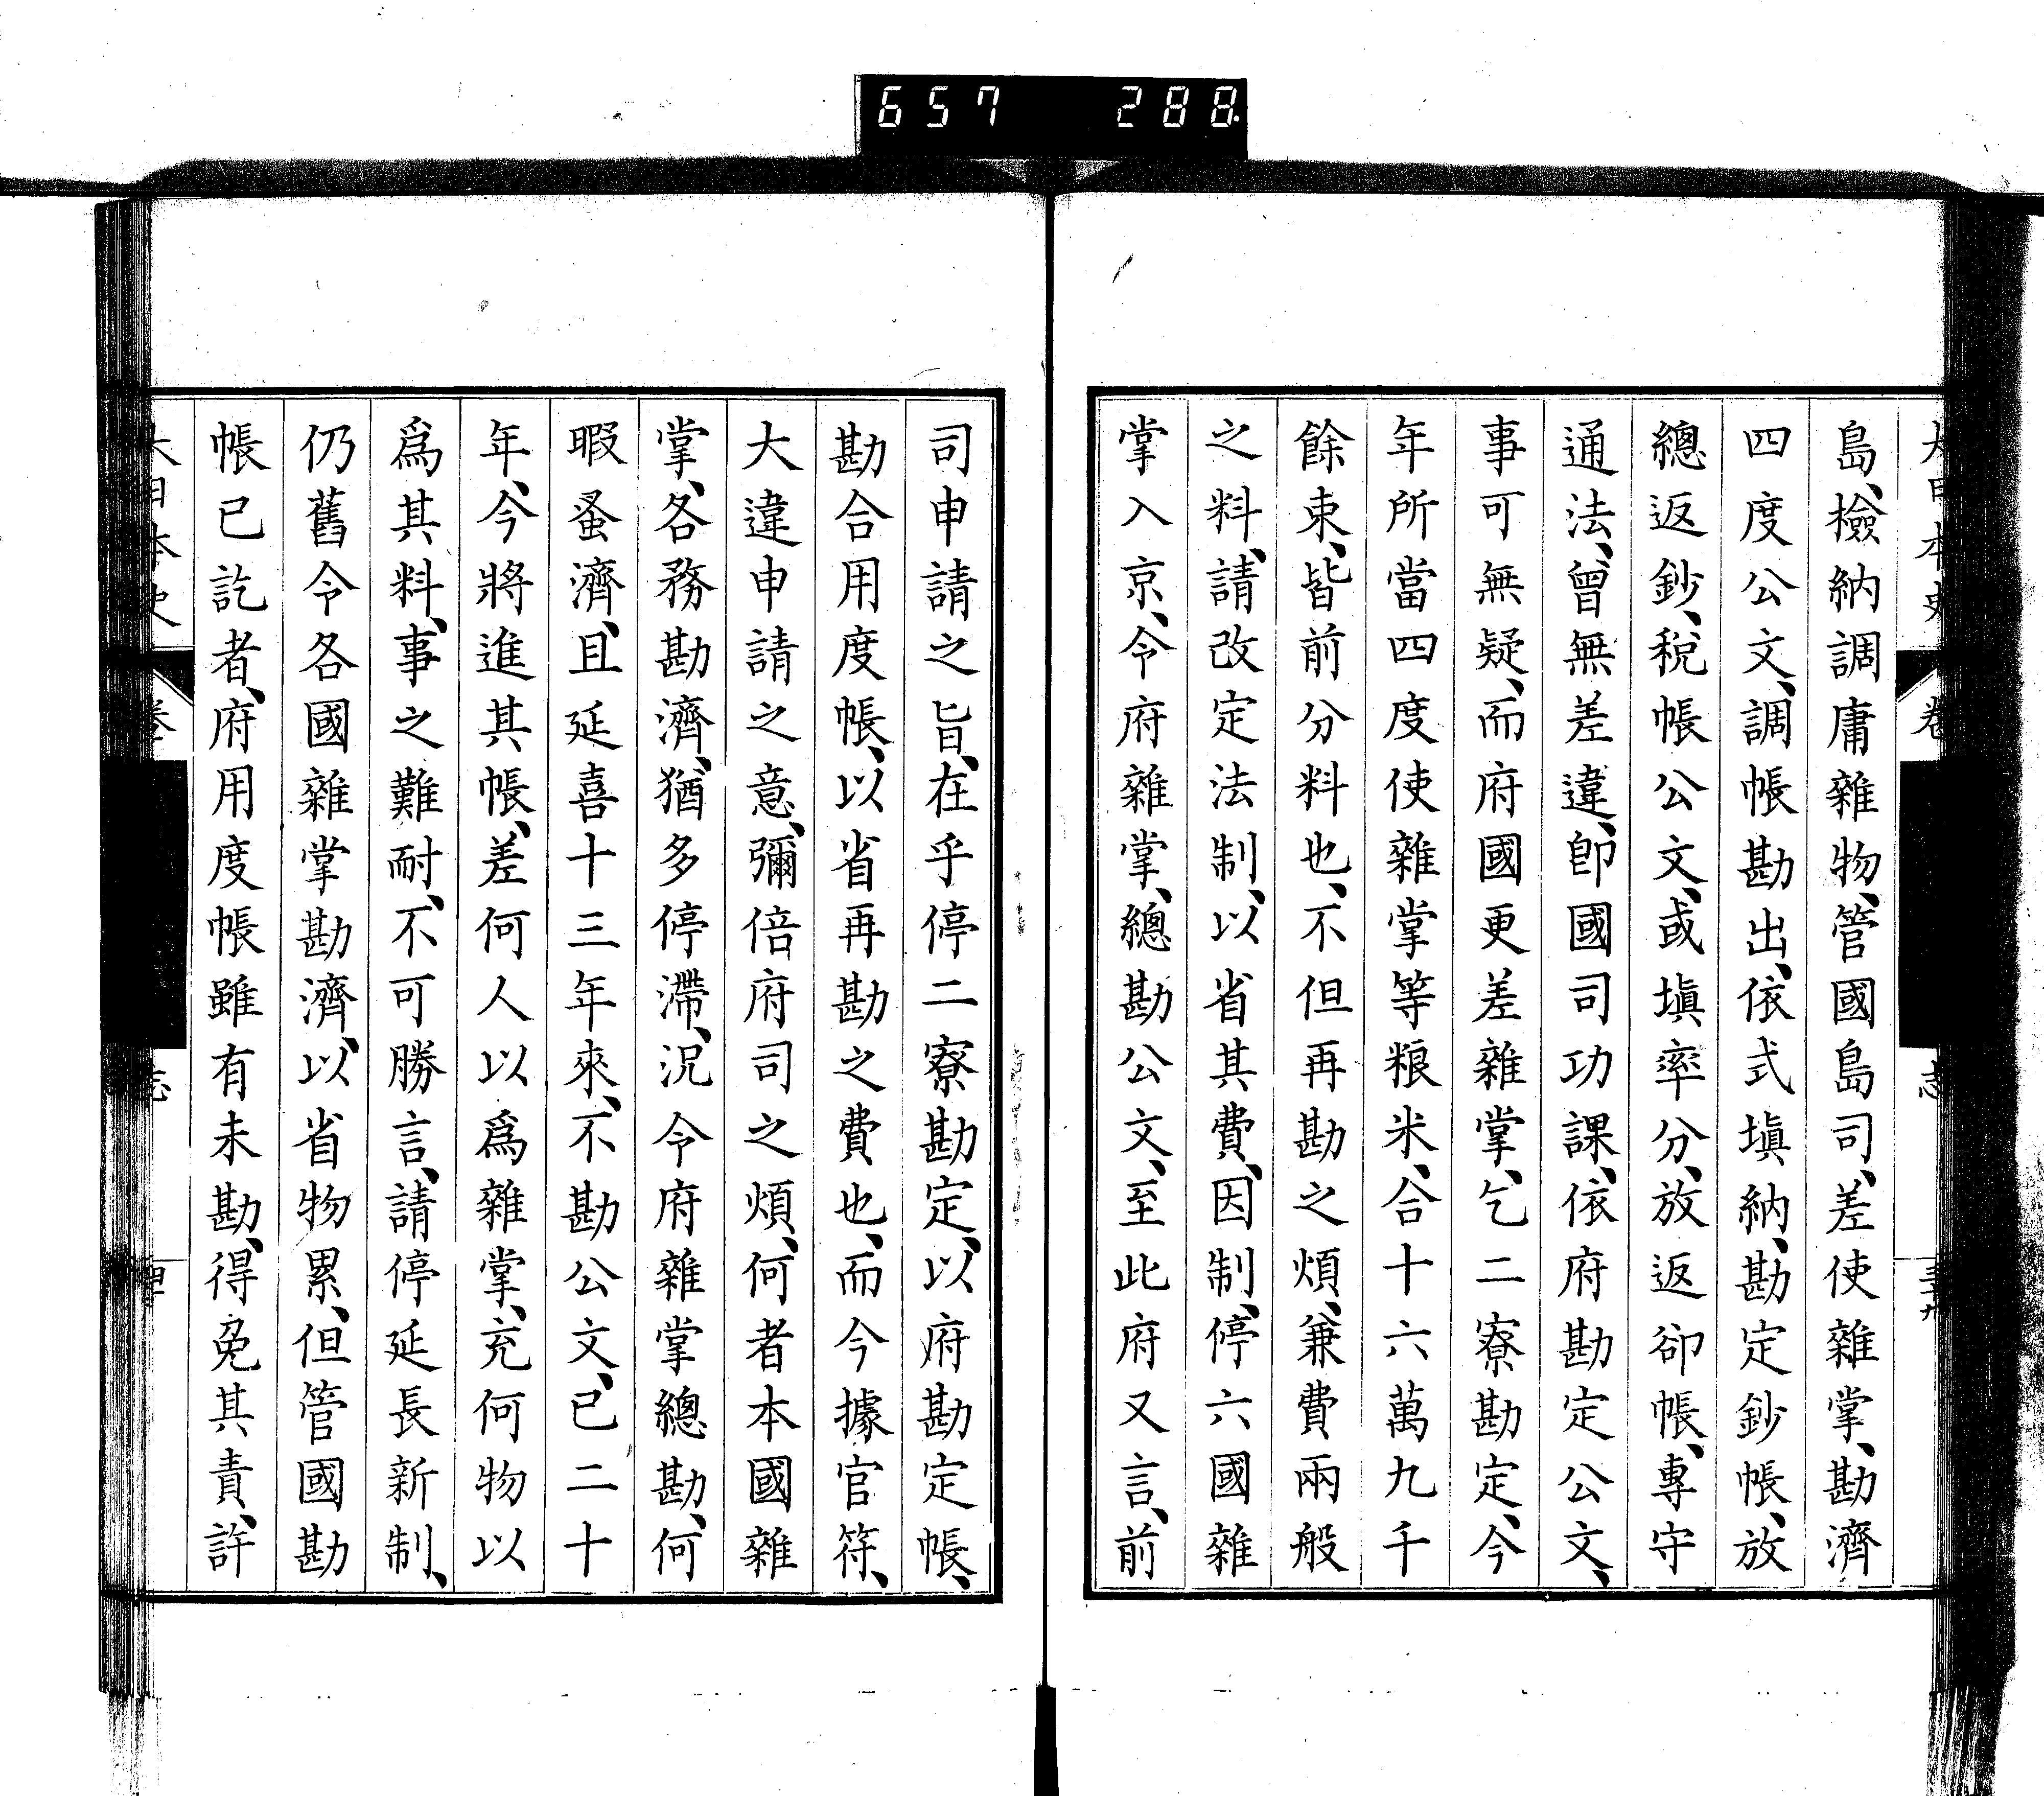 657 288.
島、檢納調庸雜物、管國島司、差使雜掌、勘濟
四度公文、調帳勘出、依式塡納、勘定鈔帳、放
總返鈔、稅帳公文、或塡率分、放返卻帳、專守
通法、曾無差違、卽國司功課、依府勘定公文、
事可無疑、而府國更差雜掌、乞二寮勘定、今
年所當四度使雜掌等粮米、合十六萬九千
餘束、皆前分料也、不但再勘之煩、兼費兩般
之料、請改定法制、以省其費、因制、停六國雜
掌入京、令府雜掌、總勘公文、至此府又言、前
司申請之旨、在乎停二寮勘定、以府勘定帳、
勘合用度帳、以省再勘之費也、而今據官符、
大違申請之意、彌倍府司之煩、何者本國雜
掌、各務勘濟、猶多停滯、況令府雜掌總勘、何
暇蚤濟、且延喜十三年來、不勘公文、已二十
年、今將進其帳、差何人以爲雜掌、充何物以
爲其料、事之難耐、不可勝言、請停延長新制、
仍舊令各國雜掌勘濟、以省物累、但管國勘
帳已訖者、府用度帳雖有未勘、得免其責、許